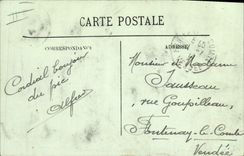 CARTE POSTALE
CORRESPONDANCE
ADRESSE
Cordial bonjour
du pic
Alfred
Monsieur et Madame
Jausseau
rue Goupilleau,
Fontenay-le-Comte
Vendée